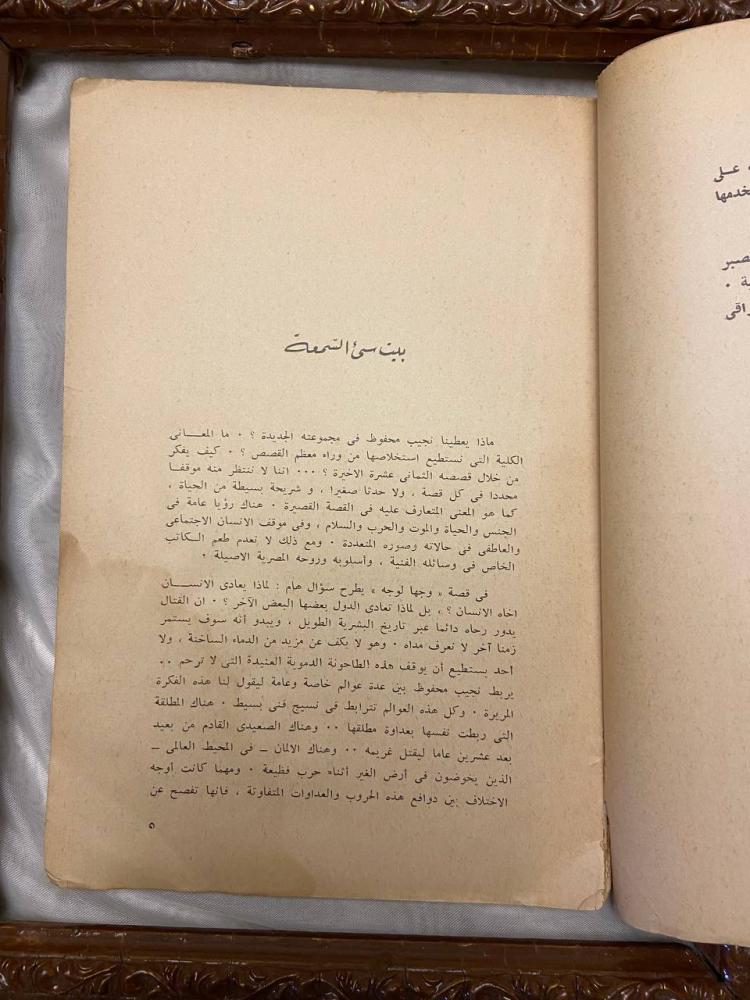 بيت سئ السمعة
ماذا يعطينا نجيب محفوظ فى مجموعته الجديدة ؟ ٠ ما المعـــانى
الكلية التى نستطيع استخلاصها من وراء معظم القصص ؟ ٠ كيف يفكر
من خلال قصصه الثمانى عشرة الاخيرة ؟ ٠٠٠ اننا لا ننتظر منه موقفـا
محددا فى كل قصة ، ولا حدثا صغيرا ، و شريحة بسيطة من الحياة ،
كما هو المعنى المتعارف عليه فى القصة القصيرة ٠ هناك رؤيا عامة فى
الجنس والحياة والموت والحرب والسلام ، وفى موقف الانسان الاجتماعى
والعاطفى فى حالاته وصوره المتعددة ٠ ومع ذلك لا نعدم طعم الكـاتب
الخاص فى وسائله الفنية ، وأسلوبه وروحه المصرية الاصيلة ٠
فى قصة « وجها لوجه » يطرح سؤال هام : لماذا يعادى الانســـان
اخاه الانسان ؟ ، بل لماذا تعادى الدول بعضها البعض الآخر ؟ ٠ ان القتال
يدور رحاه دائما عبر تاريخ البشرية الطويل ، ويبدو أنه سوف يستمر
زمنا آخر لا نعرف مداه ٠ وهو لا يكف عن مزيد من الدماء الساخنة ، ولا
أحد يستطيع أن يوقف هذه الطاحونة الدموية العنيدة التى لا ترحم ٠٠
يربط نجيب محفوظ بين عدة عوالم خاصة وعامة ليقول لنا هذه الفكرة
المريرة ٠ وكل هذه العوالم تترابط فى نسيج فنى بسيط ٠ هناك المطلقة
التى ربطت نفسها بعداوة مطلقها ٠٠ وهناك الصعيدى القادم من بعيد
بعد عشرين عاما ليقتل غريمه ٠٠ وهناك الالمان ــ فى المحيط العالمى ــ
الذين يخوضون فى أرض الغير أثناء حرب فظيعة ٠ ومهما كانت أوجه
الاختلاف بين دوافع هذه الحروب والعداوات المتفاوتة ، فانها تفصح عن
٥
على